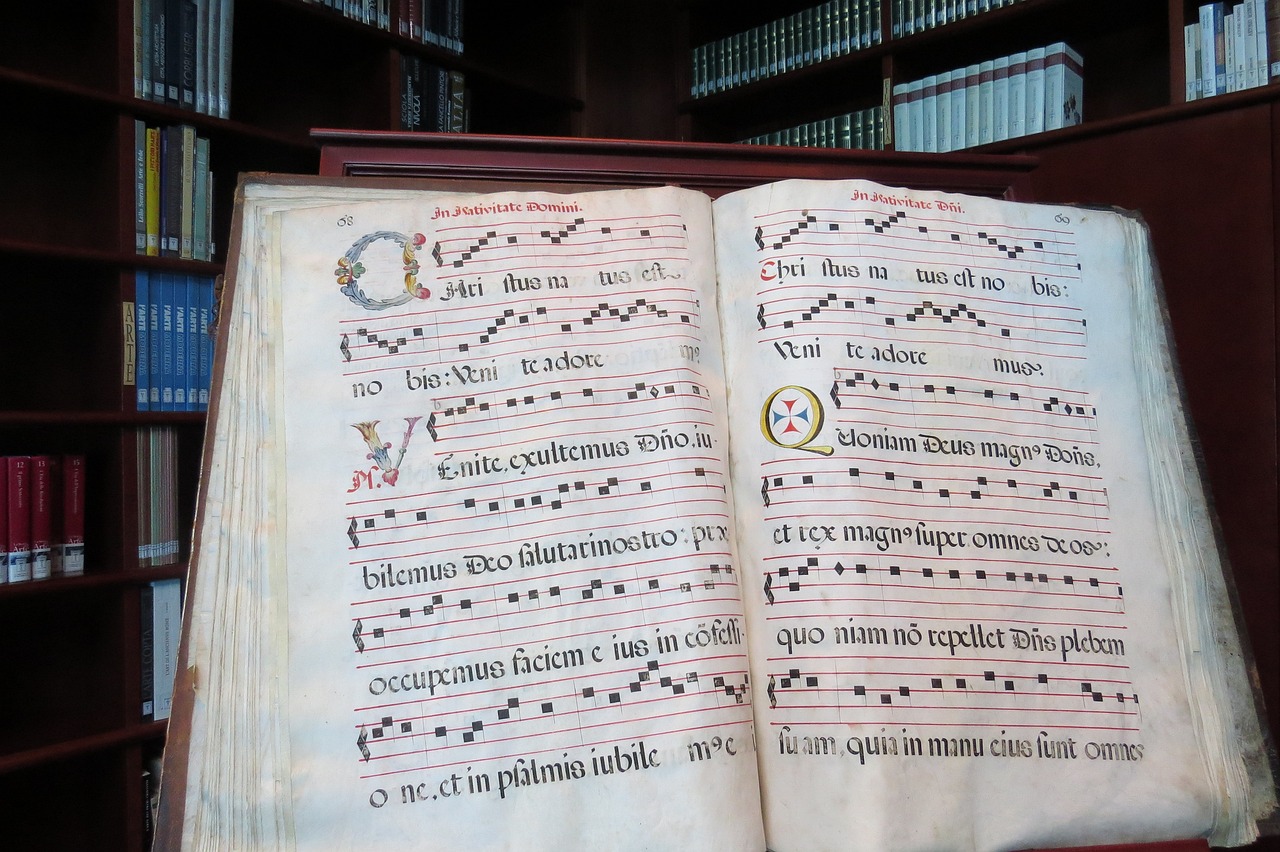 68
In Nativitate Domini.
CHri stus na tus est
no bis: Veni te adore m9
Ps. VEnite, exultemus Dño, iu-
bilemus Deo salutarinostro: præ
occupemus faciem e ius in cõfessi-
o ne, et in psalmis iubile m9 e
69
In Nativitate Dñi.
Chri stus na tus est no bis:
Veni te adore mus.
Quoniam Deus magn9 Doñs,
et rex magn9 super omnes deos:
quo niam nõ repellet Dñs plebem
su am, quia in manu eius sunt omnes
ARTE
L'ARTE
L'ARTE
L'ARTE
L'ARTE
L'ARTE